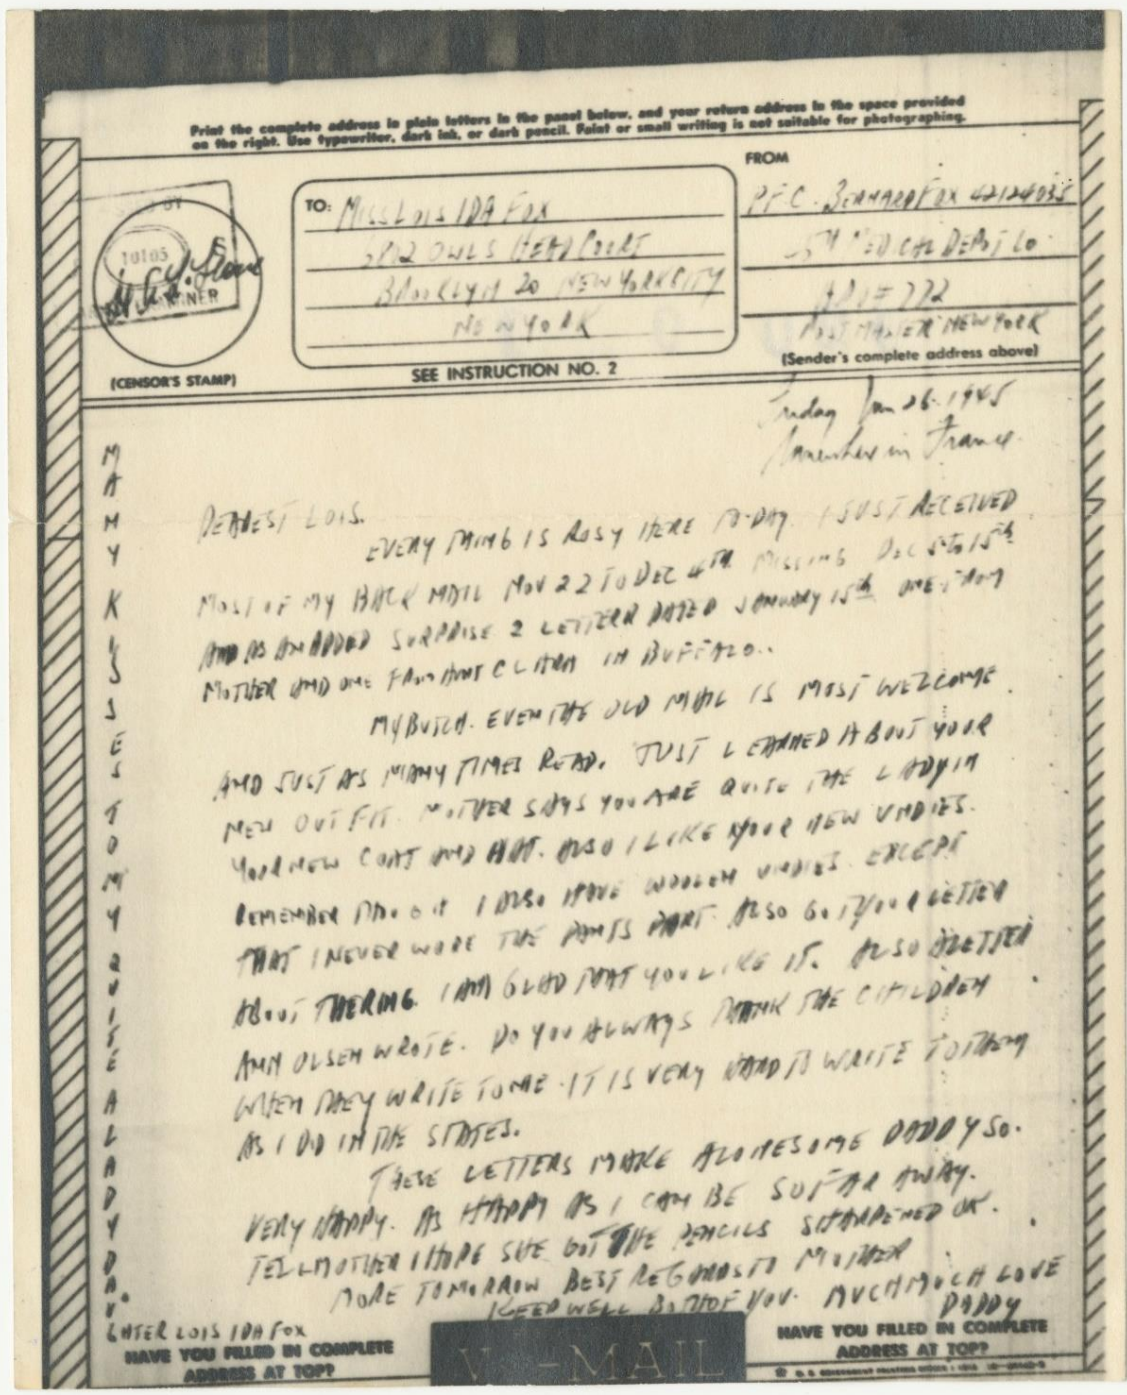 Print the complete address in plain letters in the panel below, and your return address in the space provided
on the right. Use typewriter, dark ink, or dark pencil. Faint or small writing is not suitable for photographing.
FROM
TO: MISS LOIS IDA FOX
6802 OWLS HEAD COURT
BROOKLYN 20 NEW YORK CITY
NEW YORK
PFC. BERNARD FOX 42124035
MEDICAL DEPOT CO
APO # 772
POSTMASTER NEW YORK
(Sender's complete address above)
10105
(CENSOR'S STAMP)
SEE INSTRUCTION NO. 2
Friday Jan 26. 1945
Somewhere in France.
DEAREST LOIS.
EVERY THING IS ROSY HERE TO-DAY. I JUST RECEIVED
MOST OF MY BACK MAIL NOV 22 TO DEC 4TH MISSING DEC 5 TO 15th
AND AS AN ADDED SURPRISE 2 LETTERR DATED JANUARY 15th ONE FROM
MOTHER AND ONE FROM AUNT CLARA IN BUFFALO..
MY BUTCH. EVEN THE OLD MAIL IS MOST WELCOME
AND JUST AS MANY TIMES READ. JUST LEARNED ABOUT YOUR
NEW OUTFIT. MOTHER SAYS YOU ARE QUITE THE LADY IN
YOUR NEW COAT AND HAT. ALSO I LIKE YOUR NEW UNDIES.
REMEMBER I ALSO HAVE WOOLEN UNDIES. EXCEPT
THAT I NEVER WORE THE PANTS PART. ALSO GOT YOUR LETTER
ABOUT THE RING. I AM GLAD THAT YOU LIKE IT. ALSO A LETTER
ANN OLSEN WROTE. DO YOU ALWAYS THANK THE CHILDREN
WHEN THEY WRITE TO ME. IT IS VERY HARD TO WRITE TO THEM
AS I DID IN THE STATES.
THESE LETTERS MAKE A LONESOME DADDY SO.
VERY HAPPY. AS HAPPY AS I CAN BE SO FAR AWAY.
TELL MOTHER I HOPE SHE GOT THE PENCILS SHARPENED OK.
MORE TOMORROW BEST REGARDS TO MOTHER
KEEP WELL BOTH OF YOU. MUCH MUCH LOVE
DADDY
MANY KISSES TO MY QUITE A LADY DAU.
GHTER LOIS IDA FOX
HAVE YOU FILLED IN COMPLETE
ADDRESS AT TOP?
V···—MAIL
HAVE YOU FILLED IN COMPLETE
ADDRESS AT TOP?